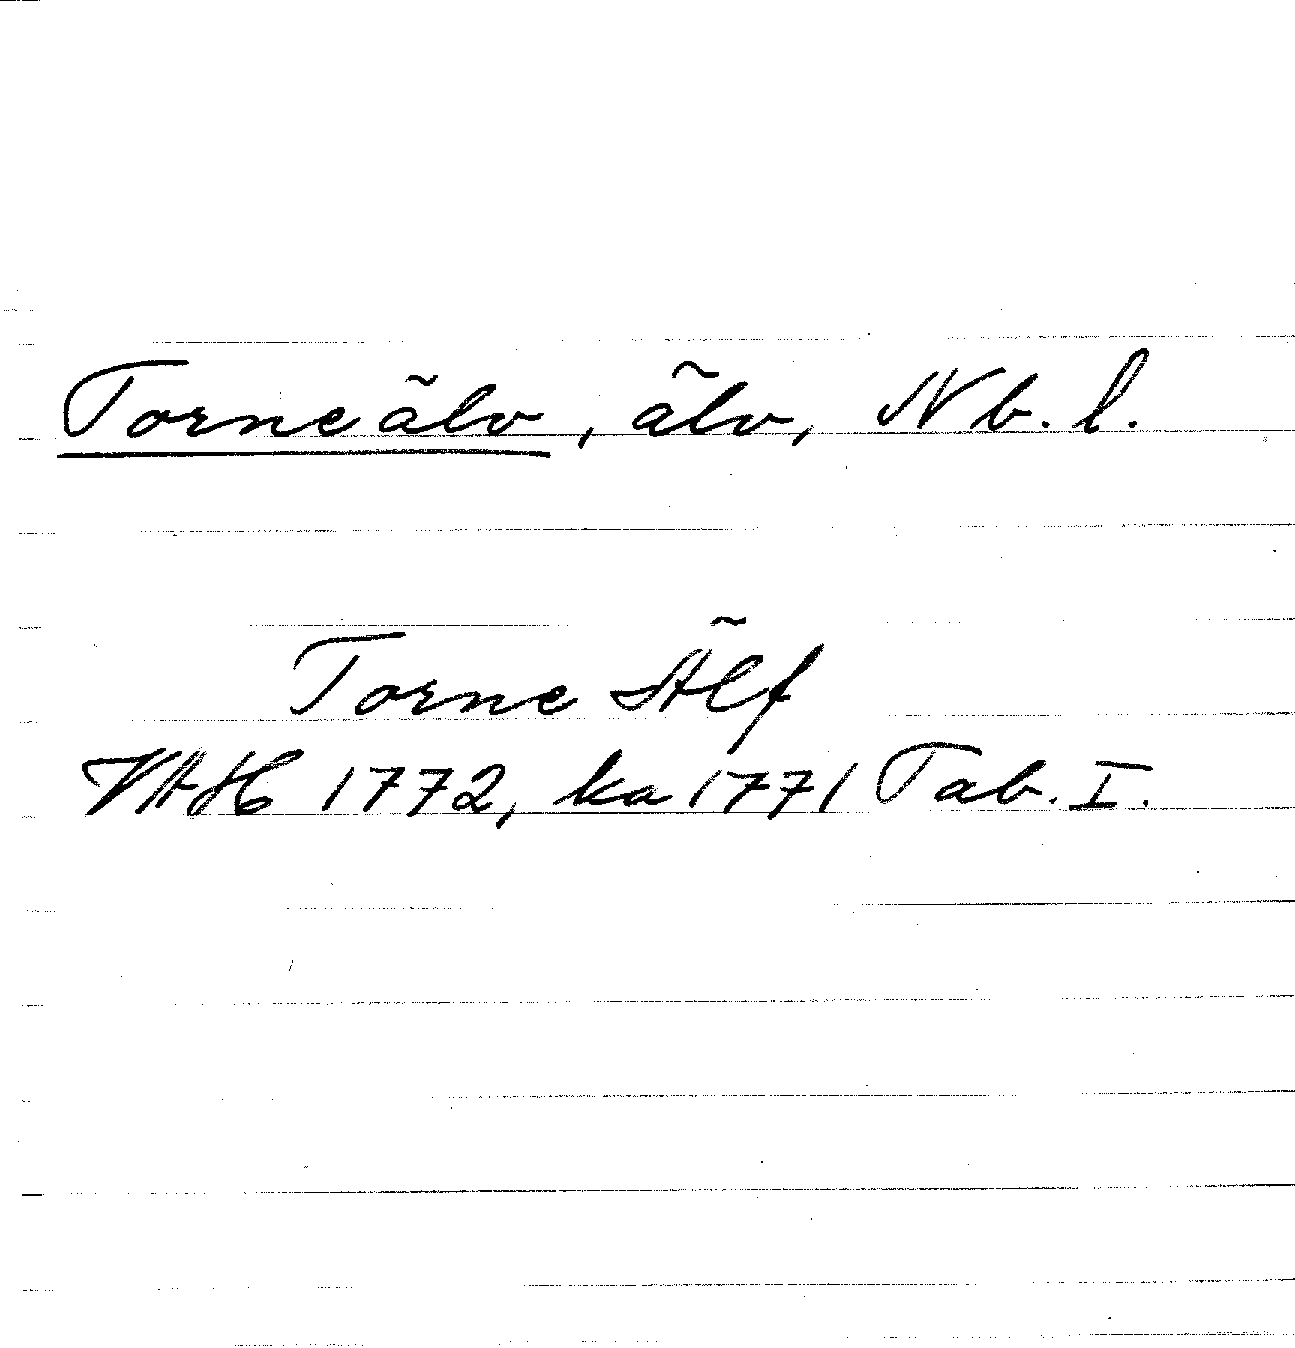 Torneälv, älv, Nb. l.
Torne Älf
VAH 1772, ka 1771 Tab. I.